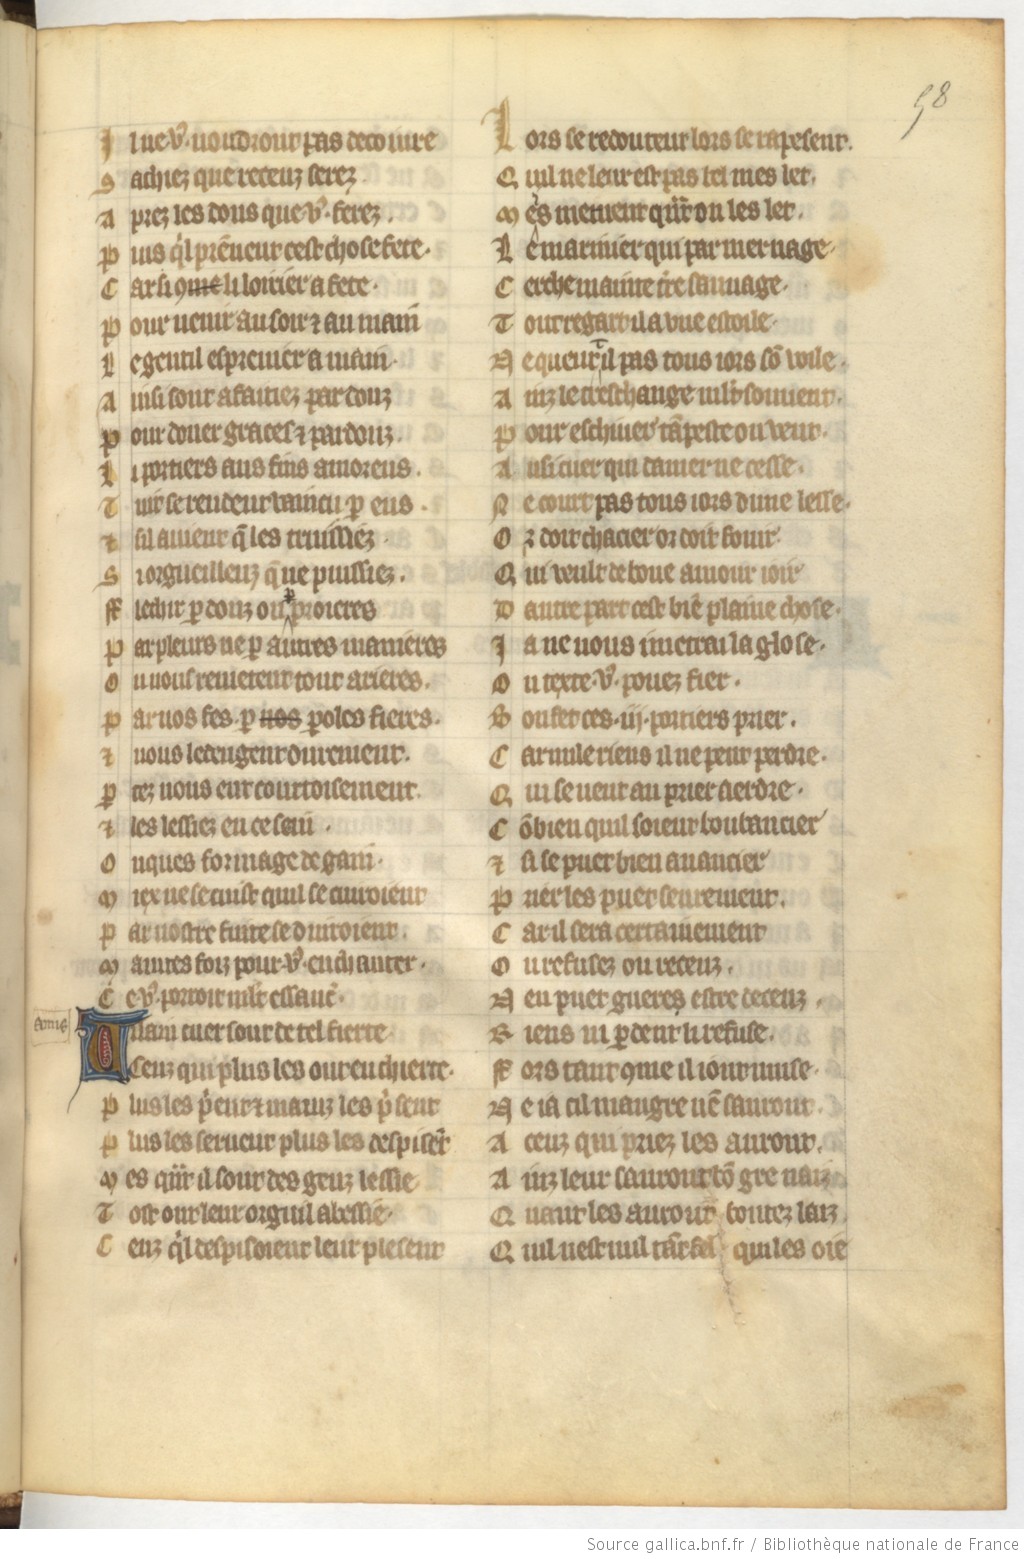 58
I l ne vꝰ voudront pas decoivre
S achiez que receuz serez
A prez les dons que vꝰ ferez.
P uis q̑l prēnent cest chose fete.
C ar si 9me li loirrier a fete.
P our venir au soir ⁊ au main
L e gentil esprevier a main.
A insi sont afaitiez par dons
P our doner graces ⁊ pardons.
L i portiers aus fins amoreus.
T uit se rendent vaincu p̱ eus.
⁊ sil avient q̄ les truissiez.
S i orgueilleuz q̄ ne puissiez.
ff lechir p̱ dons ou p̱ proieres
P ar pleurs ne p̱ autres manieres
O u vous remetent tout arieres.
P ar nos fes. p̱ nos p̱oles fieres.
⁊ vous ledengent durement.
P tez vous ent courtoisement.
⁊ les lessiez en ce sain.
O nques formage de gain.
M iex ne se cuist quil se cuiroient
P ar vostre fuite se duiroient.
M aintes foiz pour vꝰ enchaucer.
C e vꝰ porroit mlt̄ essauc̄.
Amis
V ilain cuer sont de tel fierte
C euz qui plus les ont en chierte.
P lus les p̄ent ⁊ mainz les p̄sent
P lus les servent plus les despisent
M es qn̄t il sont des genz lessie
T ost ont leur orguil abessie.
C euz q̑l desprisoient leur plesent
L ors se redoutent lors se rapesent.
Q uil ne leur est pas bel mes let.
M es metuent qn̄t on les let.
L e marinier qui par mer nage.
C erche mainte tr̄re sauvage.
T out regart il a une estoile.
N e queurt il pas tous iors sō voile.
A inz le treschange mlt̄ souvent.
P our eschiver tāpeste ou vent.
A insi cuer qui damer ne cesse.
N e court pas tous iors dune lesse.
O r doit chacier or doit fouir
Q ui veult de bone amour ioir
D autre part cest biē plaine chose.
I a ne vous i metrai la glose.
O u texte vꝰ poues fier.
B on fet ces .iij. portiers prier.
C ar nule riens il ne peut perdre.
Q ui se veut au prier aerdre.
C ōbien quil soient boubancier
⁊ si se puet bien avancier
P rier les puet seurement.
C ar il sera certainement
O u refusez ou receuz.
N en puet gueres estre deceuz.
R iens ni p̱dent li refuse.
ff ors tant 9me il i ont muse.
N e ia cil maugre nē savront.
A ceuz qui priez les avront.
A inz leur savront bō gre naiz
Q uant les avront boutez laiz.
Q uil nest nul tāt fel qui les oie